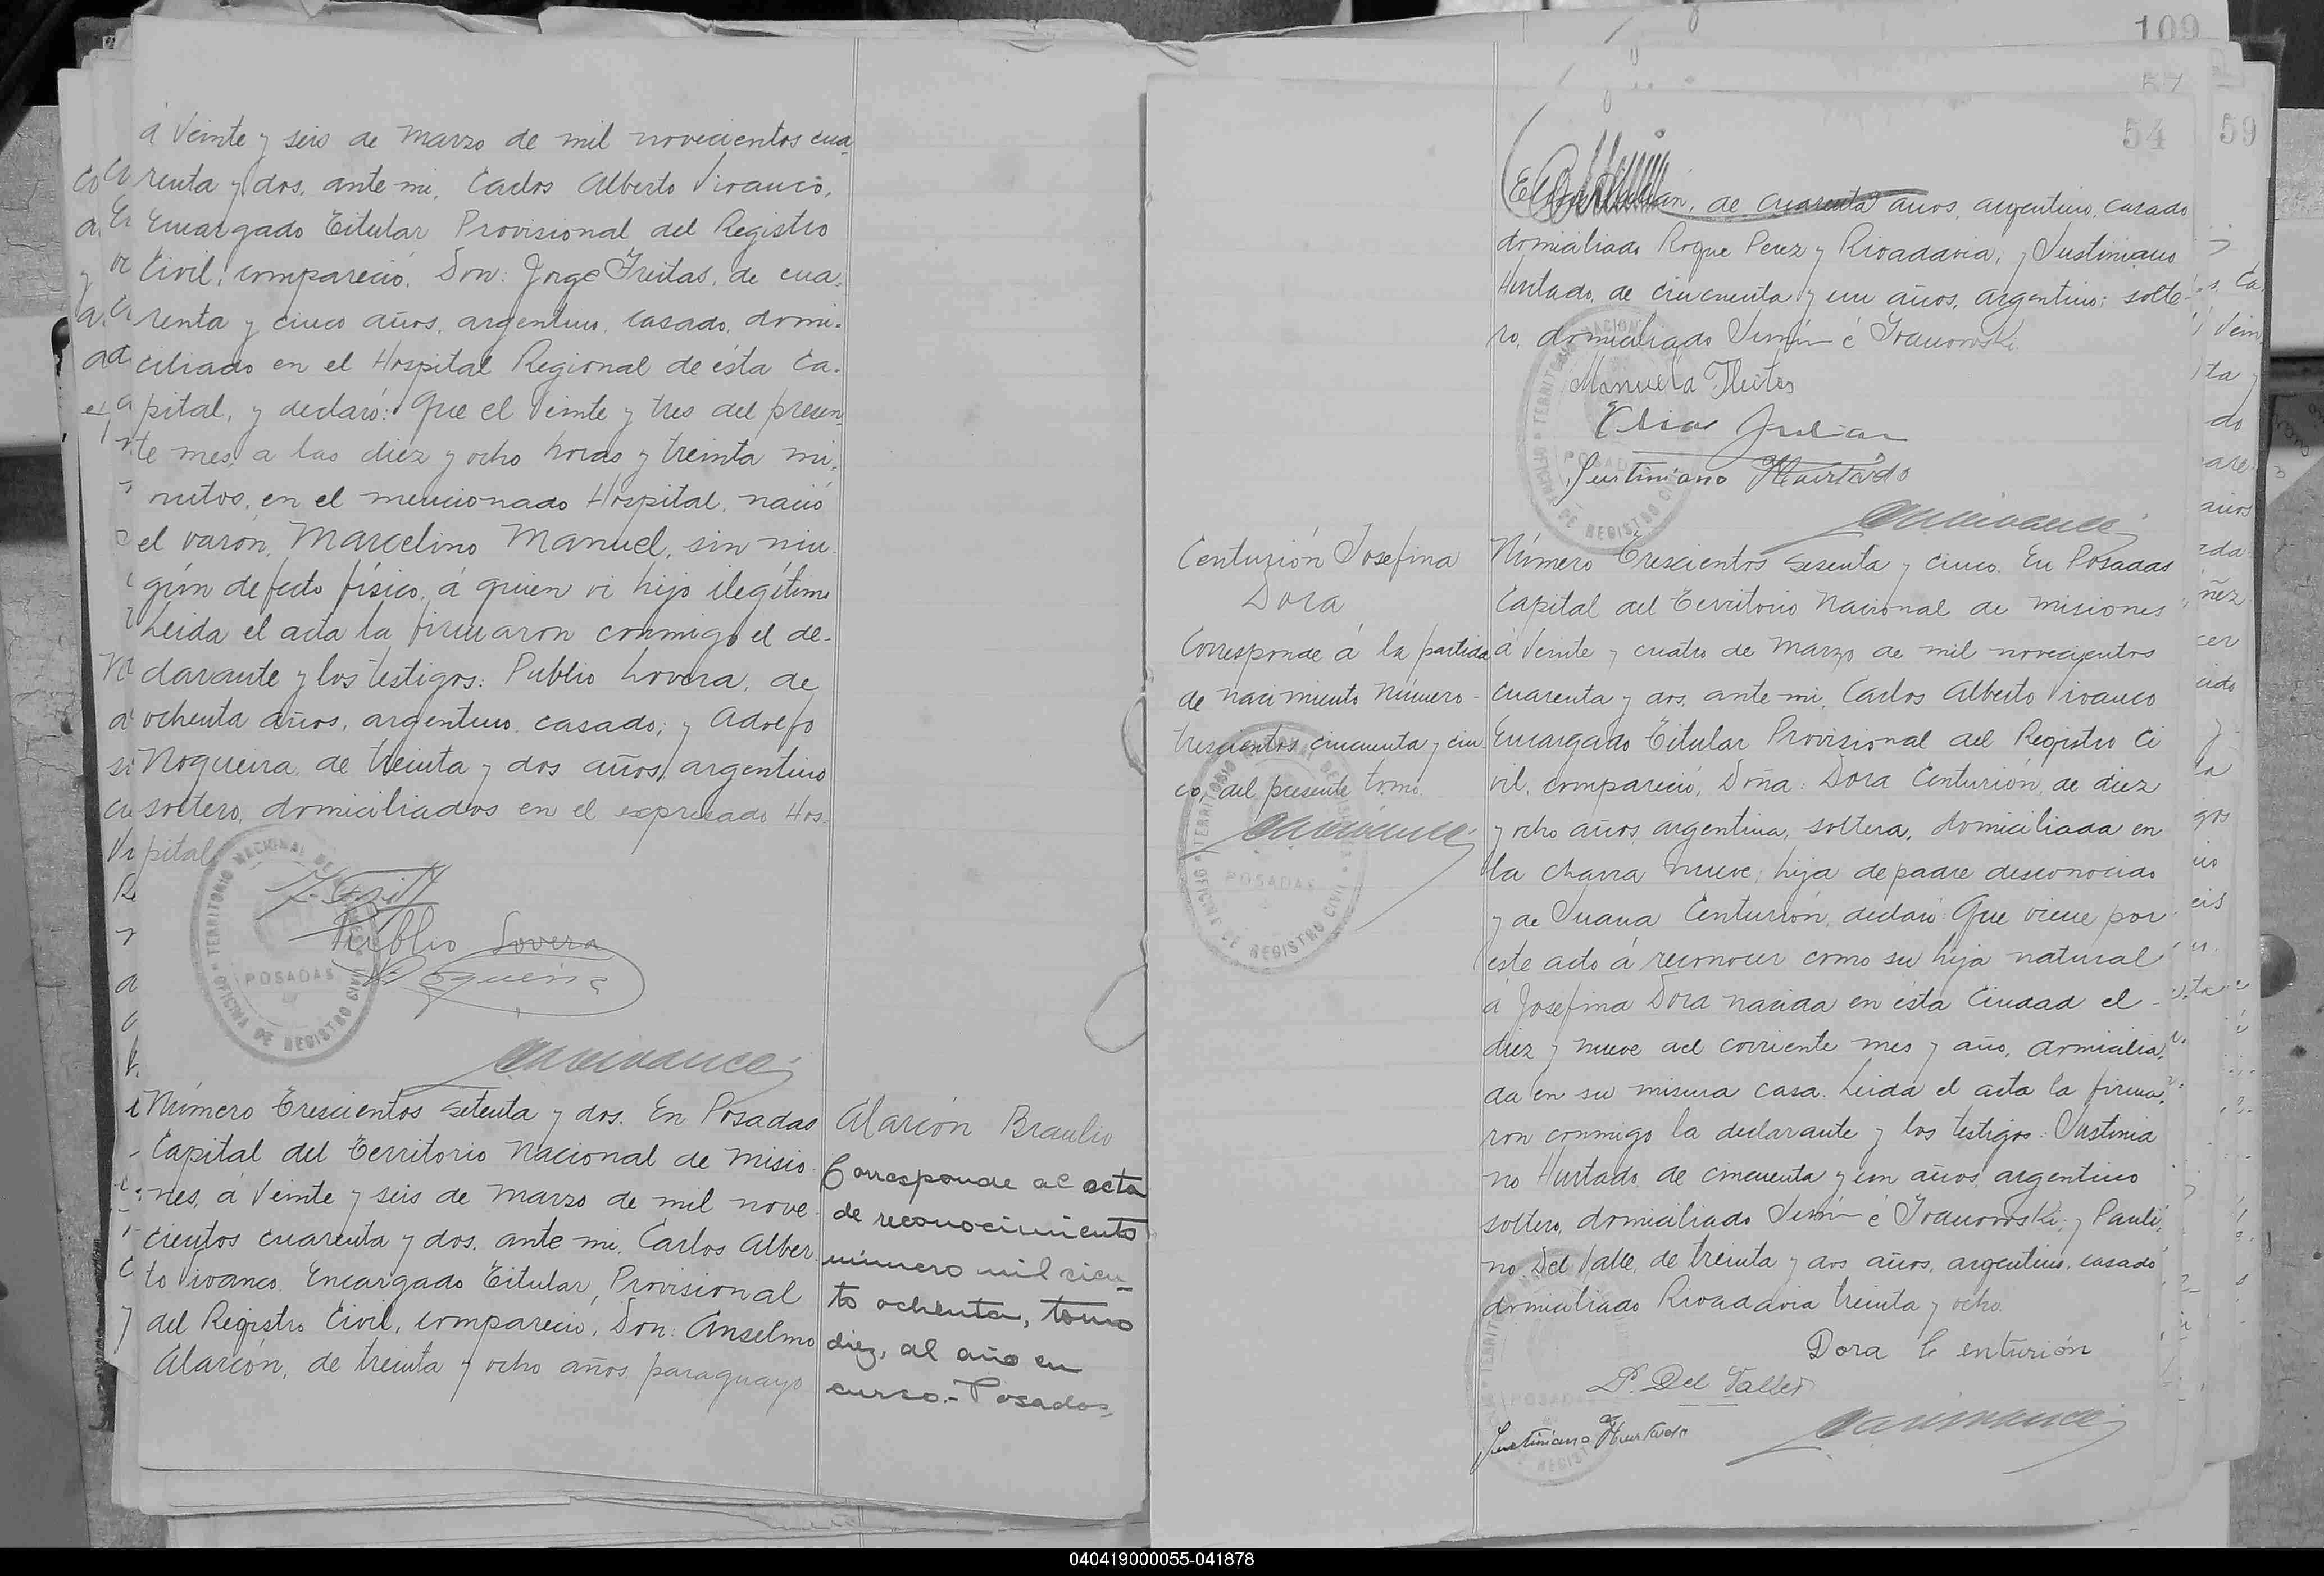 á Veinte y seis de Marzo de mil novecientos cua-
renta y dos, ante mi, Carlos Alberto Vivanco,
Encargado Titular Provisional del Registro
Civil, compareció, Don: Jorge Freitas, de cua-
renta y cinco años, argentino, casado, domi-
ciliado en el Hospital Regional de ésta Ca-
pital, y declaró: Que el Veinte y tres del presen-
te mes, a las diez y ocho horas y treinta mi-
nutos, en el mencionado Hospital, nació
el varón, Marcelino Manuel, sin nin-
gún defecto físico, á quien vi hijo ilegítimo
Leida el acta la firmaron conmigo el de-
clarante y los testigos: Publio Lovera, de
ochenta años, argentino, casado; y Adolfo
Nogueira, de treinta y dos años, argentino
soltero, domiciliados en el expresado Hos-
pital
Publio Lovera
Número Trescientos setenta y dos. En Posadas
Capital del Territorio Nacional de Misio-
nes, á Veinte y seis de Marzo de mil nove-
cientos cuarenta y dos, ante mi, Carlos Alber-
to Vivanco, Encargado Titular, Provisional
del Registro Civil, compareció, Don: Anselmo
Alarcón, de treinta y ocho años, paraguayo
Alarcón Braulio
Corresponde al acta
de reconocimiento
número mil cien-
to ochenta, tomo
diez, al año en
curso.- Posadas,
TERRITORIO NACIONAL DE
POSADAS
OFICINA DE REGISTRO CIVIL
109
54
59
de cuarenta años, argentino, casado
domiciliado Roque Perez y Rivadavia; y Justiniano
Hurtado, de cincuenta y un años, argentino; solte-
ro, domiciliado Junín é Ivanowski
Manuela
Elias Julian
Justiniano Hurtado
Centurión Josefina
Dora
Corresponde á la partida
de nacimiento número
trescientos cincuenta y cin
co, del presente tomo.
Número Trescientos sesenta y cinco. En Posadas
Capital del Territorio Nacional de Misiones
á Veinte y cuatro de Marzo de mil novecientos
cuarenta y dos, ante mi, Carlos Alberto Vivanco
Encargado Titular Provisional del Registro Ci
vil, compareció, Doña: Dora Centurión, de diez
y ocho años, argentina, soltera, domiciliada en
la chacra nueve; hija de padre desconocido
y de Juana Centurión, declaró: Que viene por
este acto á reconocer como su hija natural
á Josefina Dora nacida en ésta Ciudad el
diez y nueve del corriente mes y año, domicilia-
da en su misma casa. Leida el acta la firma-
ron conmigo la declarante y los testigos: Justinia
no Hurtado, de cincuenta y un años, argentino
soltero, domiciliado Junín é Ivanowski; y Pauli-
no Del Valle, de treinta y dos años, argentino, casado
domiciliado Rivadavia treinta y ocho.
Dora Centurión
P. Del Valle
Justiniano Hurtado
040419000055-041878